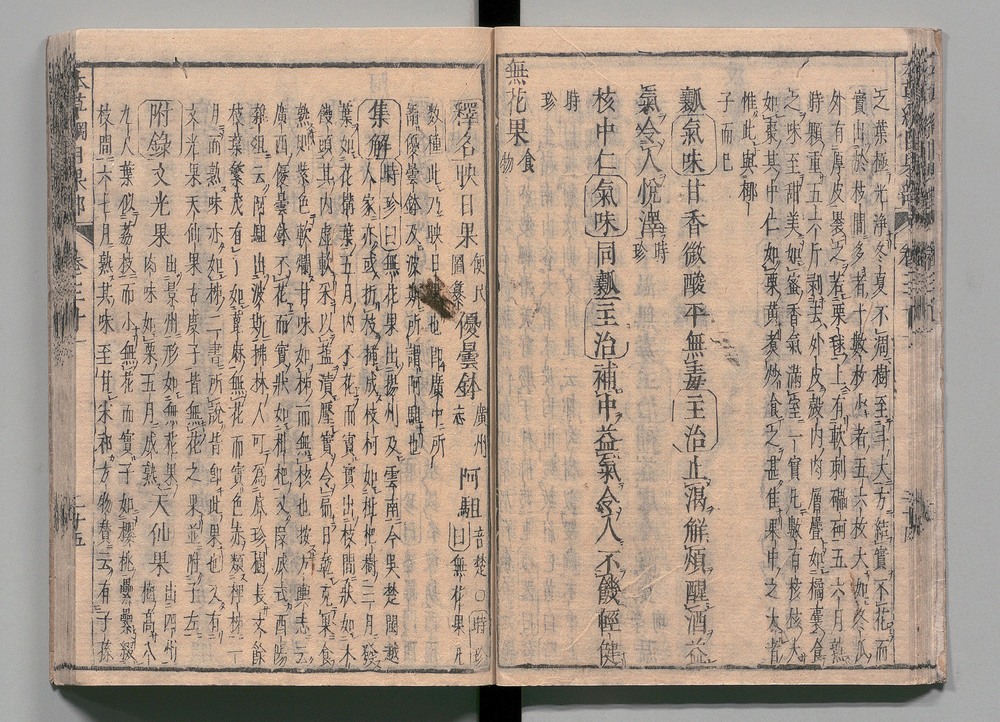 之葉極光淨冬夏不凋樹至斗大方結實不花而
實出於枝間多者十數枚少者五六枚大如冬瓜
外有厚皮裹之若栗毬上有軟刺礧砢五六月熟
時顆重五六斤剥去外皮殼内肉層疊如橘囊食
之味至甜美如蜜香氣滿室一實凡數百核核大
如棗其中仁如栗黃煮炒食之甚佳果中之大者
惟此與椰
子而已
瓤氣味甘香微酸平無毒主治止渴解煩醒酒益
氣令人悅澤時珍
核中仁氣味同瓤主治補中益氣令人不饑輕健
時珍
無花果食物
釋名映日果便民圖纂優曇鉢廣州志阿駔音楚○時珍曰無花果凡
數種此乃映日果也即廣中所
謂優曇鉢及波斯所謂阿駔也
集解時珍曰無花果出揚州及雲南今吳楚閩越
人家亦或折枝插成枝柯如枇杷樹三月發
葉如花構葉五月内不花而實實出枝間狀如木
饅頭其内虛軟采以鹽漬壓實令扁日乾充果食
熟則紫色軟爛甘味如柹而無核也按方輿志云
廣西優曇鉢不花而實狀如枇杷又段成式酉陽
雜俎云阿駔出波斯拂林人呼爲底珍樹長丈餘
枝葉繁茂有丫如蓖麻無花而實色赤類椑柹一
月而熟味亦如柹二書所說皆即此果也又有
文光果天仙果古度子皆無花之果並附于左
附錄文光果出景州形如無花果肉味如栗五月成熟天仙果出四川樹高八
九尺葉似荔枝而小無花而實子如櫻桃纍纍綴
枝間六七月熟其味至甘宋祁方物贊云有子孫